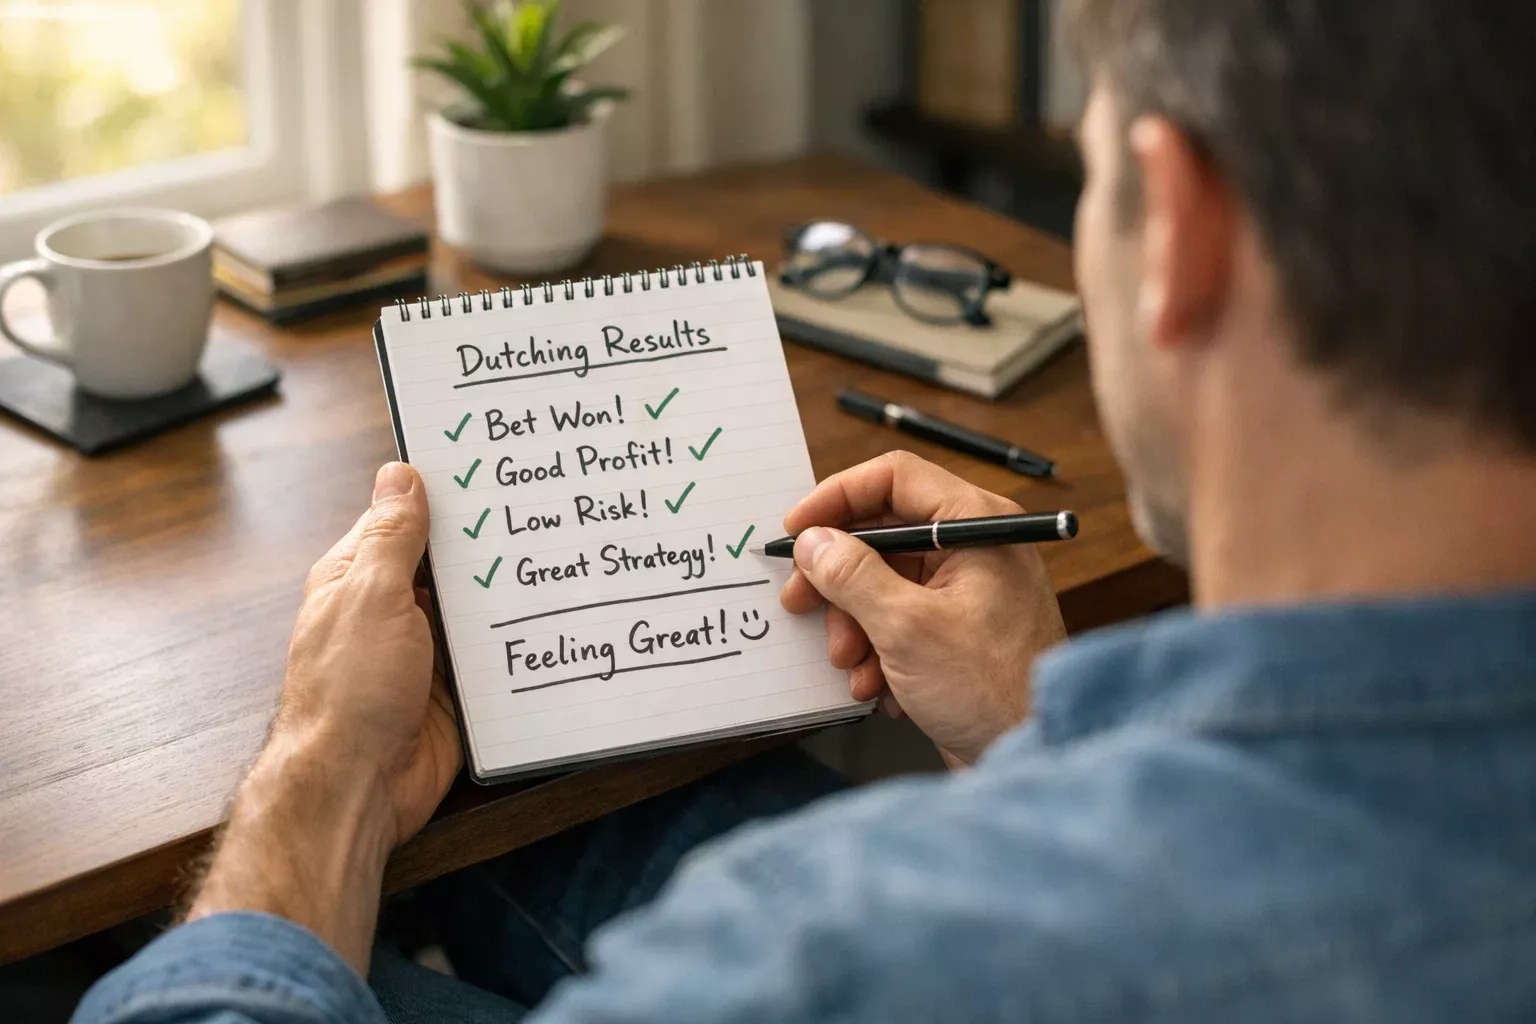 Dutching Results
✓ Bet Won! ✓
✓ Good Profit! ✓
✓ Low Risk! ✓
✓ Great Strategy! ✓
Feeling Great! :)